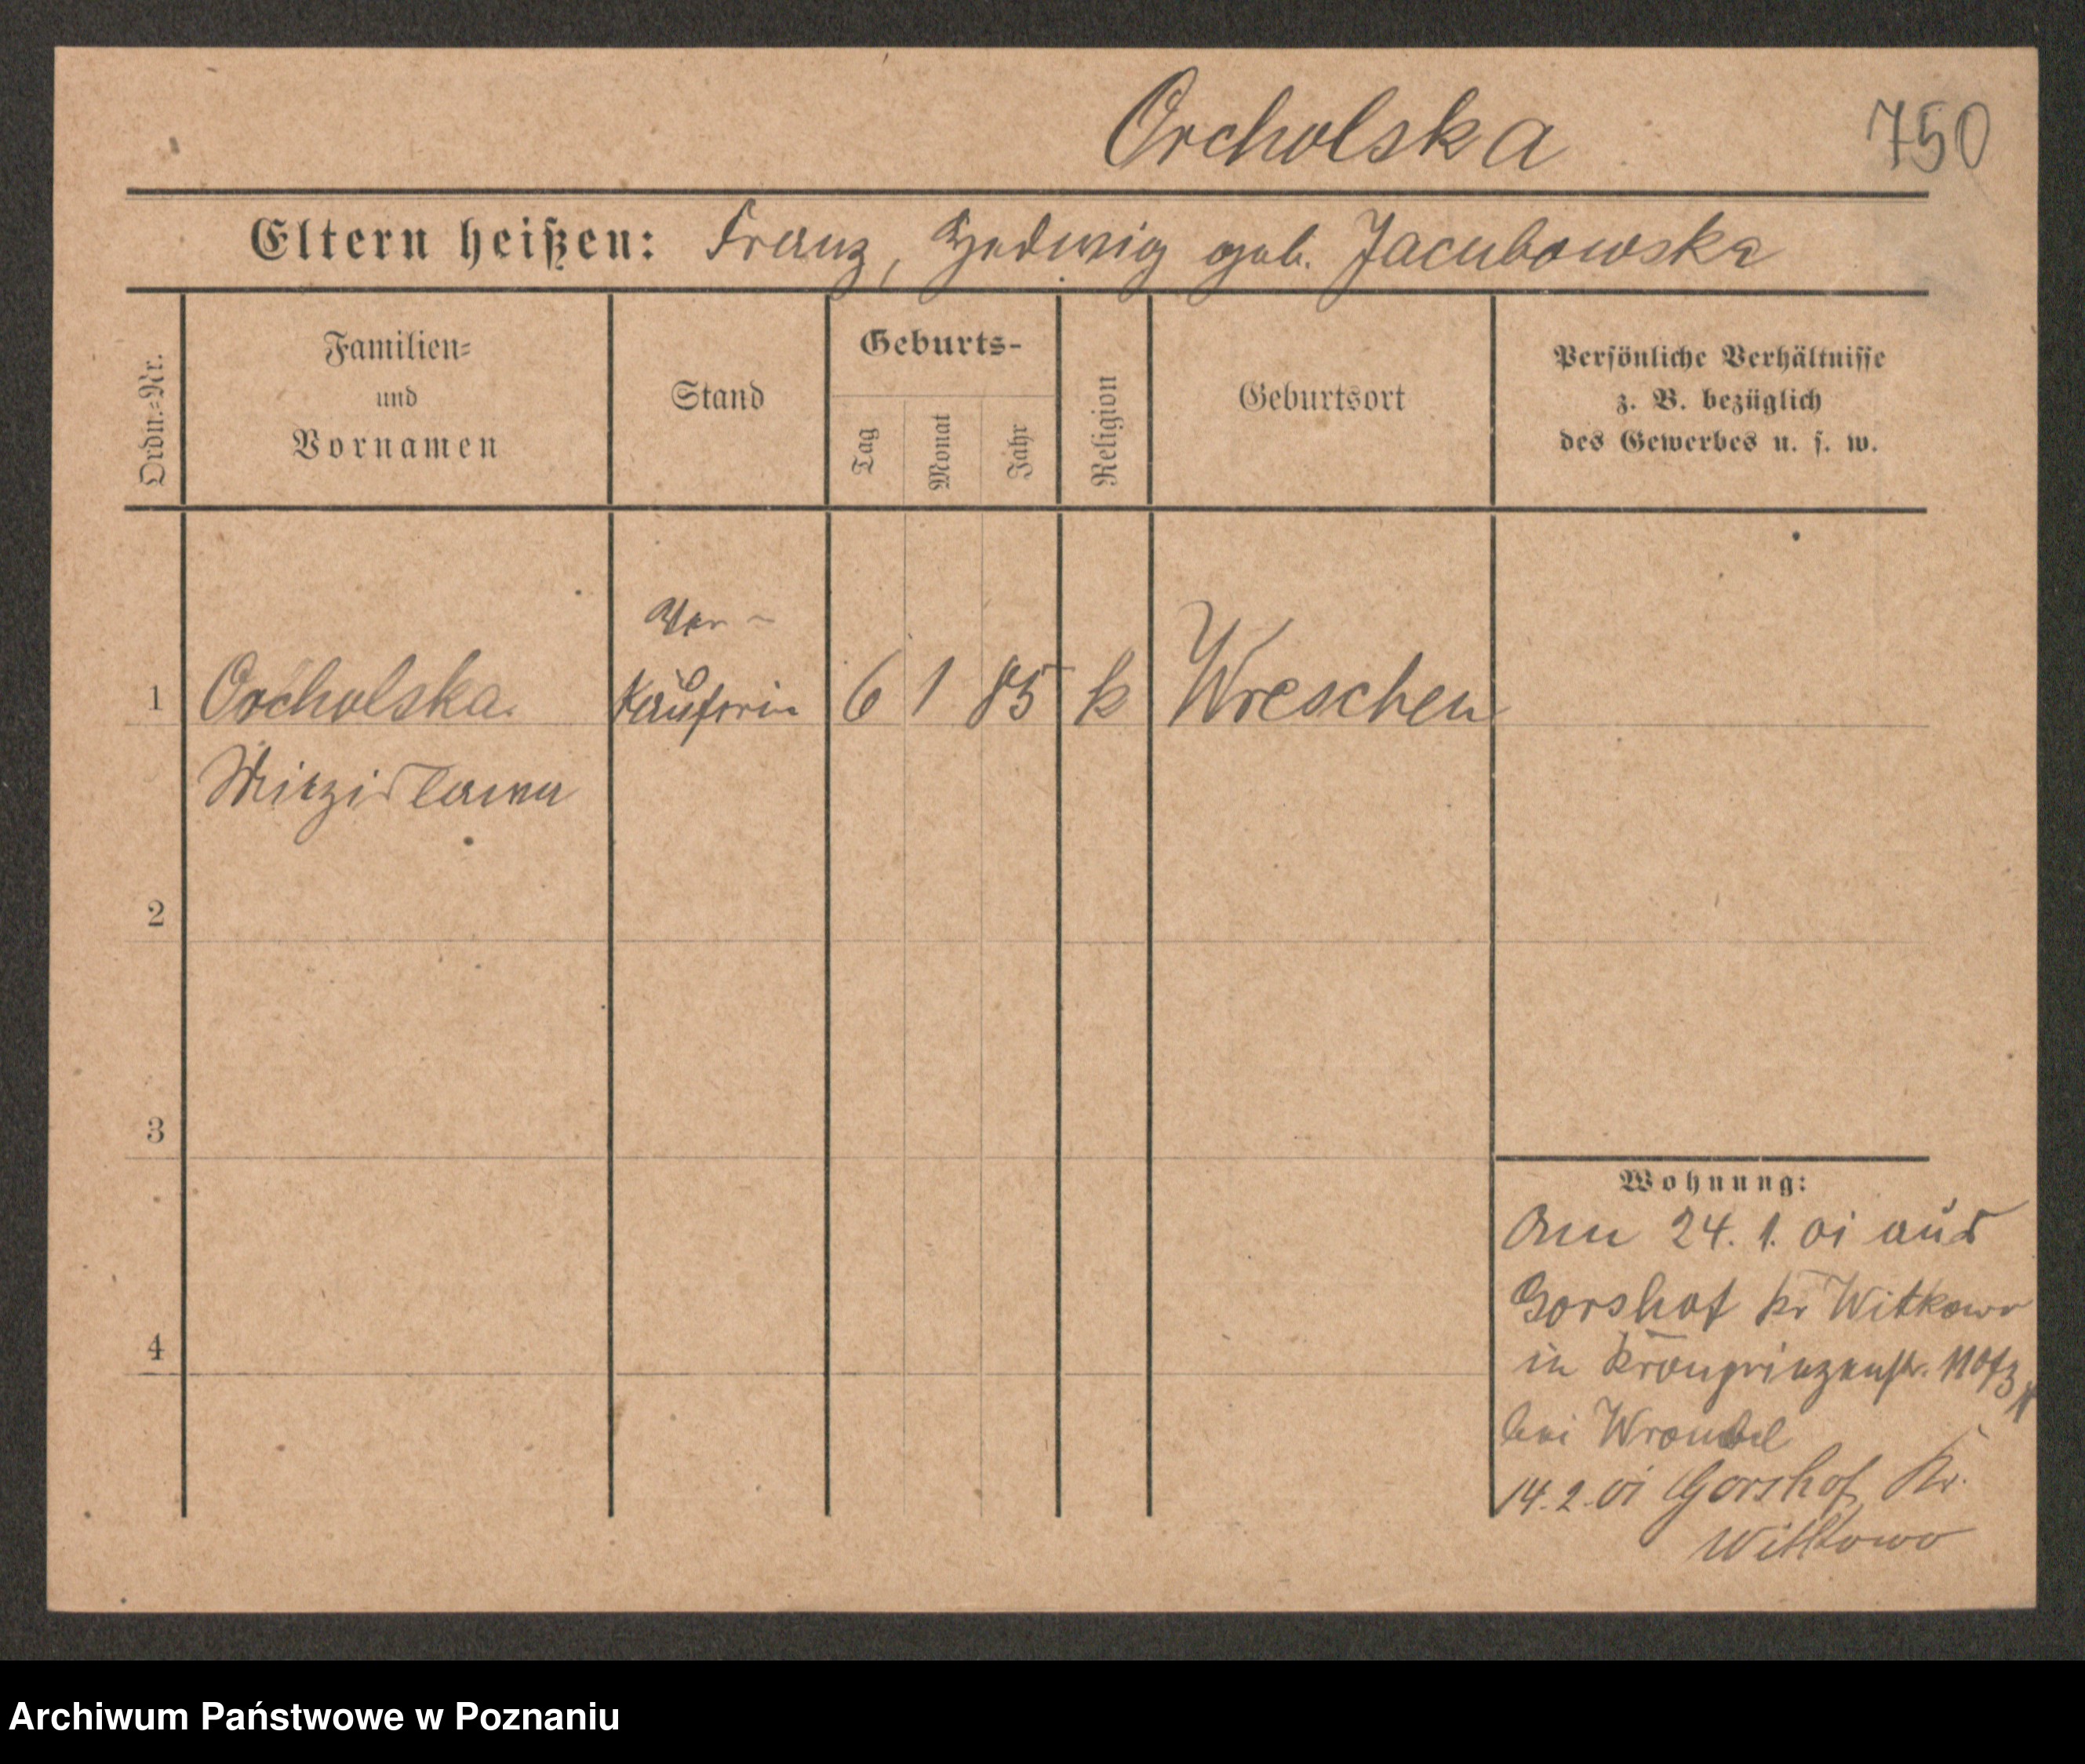 Orcholska 750
Eltern heißen: Franz, Hedwig geb. Jacubowska
Ordn.=Nr.
Familien=
und
Vornamen
Stand
Geburts-
Tag
Monat
Jahr
Religion
Geburtsort
Persönliche Verhältnisse
z. B. bezüglich
des Gewerbes u. s. w.
Ver-
1 Orcholska käuferin 6 1 85 k Wreschen
2
3
4
Wohnung:
Am 24. 1. 01 aus
Gorshof Kr Witkowo
in Kronprinzenstr.
bei
14. 2. 01 Gorshof Kr.
Witkowo
Archiwum Państwowe w Poznaniu